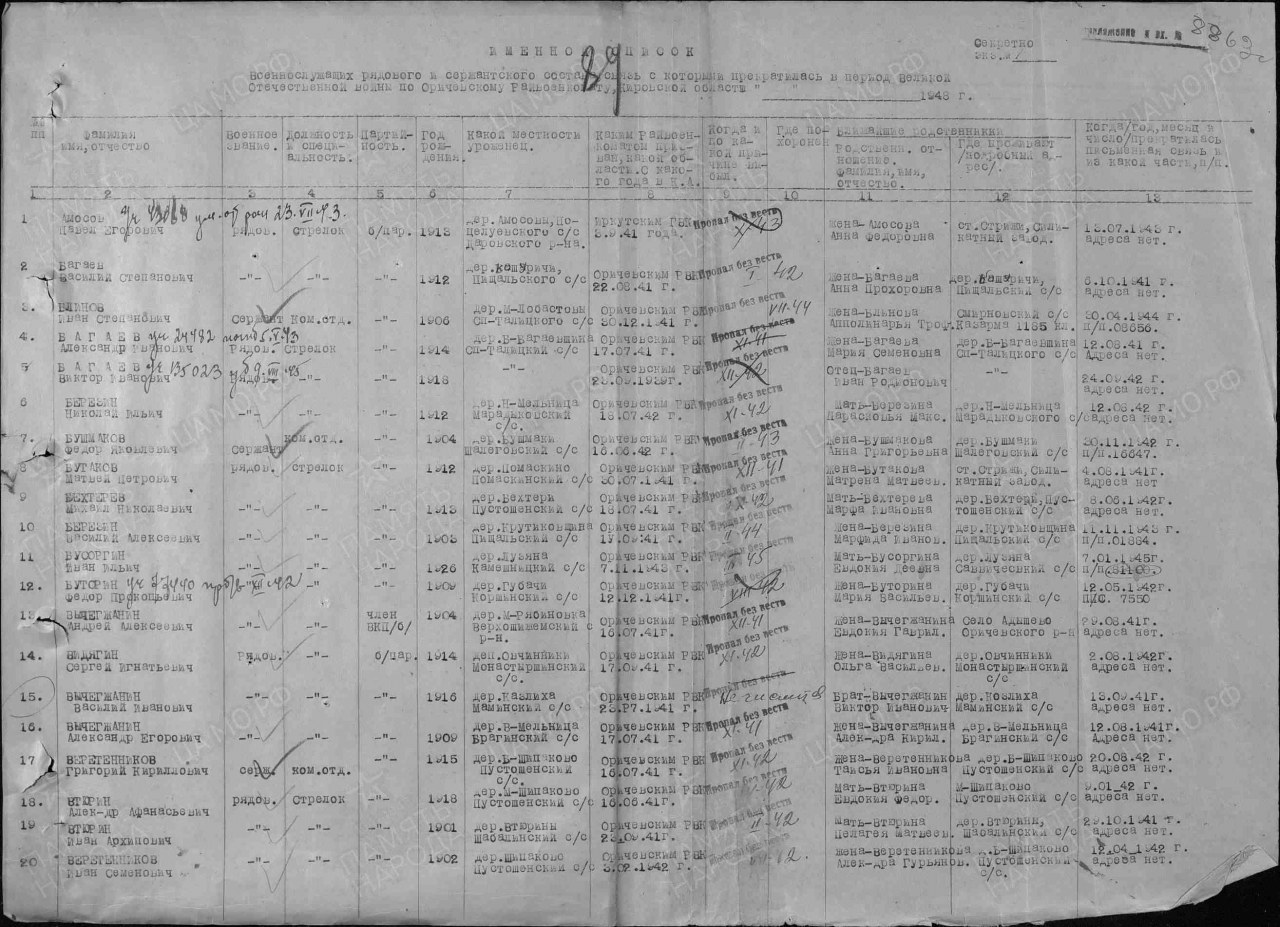 ИМЕННОЙ СПИСОК
89
Секретно
экз.№ 1
приложение к вх. №
Военнослужащих рядового и сержантского состава, связь с которыми прекратилась в период Великой
Отечественной войны по Оричевскому Райвоенкомату, Кировской области " " 1948 г.
№ пп Фамилия имя, отчество Военное звание. Должность и специальность. Партийность. Год рождения. Какой местности уроженец. Каким Райвоенкоматом призван, какой области. С какого года в К.А. Когда и по какой причине выбыл. Где похоронен Ближайшие родственники Родственн. отношение. Фамилия, имя, отчество. Где проживают /подробный адрес/. Когда/год, месяц и число/прекратилась письменная связь и из какой части, п/п.
1 2 3 4 5 6 7 8 9 10 11 12 13
1 Амосов Уч 43088 ум. от ран 23.VII.43.
Павел Егорович рядов. стрелок б/пар. 1913 дер. Амосовы, Поцелуевского с/с Даровского р-на. Иркутским ГВК 3.9.41 года. Пропал без вести X-43 Жена-Амосова Анна Федоровна ст. Стрижи, Силикатный завод. 13.07.1943 г. адреса нет.
2 Багаев
Василий Степанович -"- -"- -"- 1912 дер. Кашуричи, Пищальского с/с Оричевским РВК 22.08.41 г. Пропал без вести I 42 Жена-Багаева Анна Прохоровна дер. Кашуричи, Пищальский с/с 6.10.1941 г. адреса нет.
3. БЛИНОВ
Иван Степанович Сержант Ком.отд. -"- 1906 дер. М-Лобастовы Сп-Талицкого с/с Оричевским РВК 30.12.1941 г. Пропал без вести VII-44 Жена-Блинова Апполинарья Троф. Смирновский с/с Казарма 1185 кл. 30.04.1944 г. п/п.08656.
4. БАГАЕВ уч 24482 погиб 5.V.43
Александр Иванович Рядов. Стрелок -"- 1914 дер. В-Багаевщина Сп-Талицкий с/с Оричевским РВК 17.07.41 г. Пропал без вести XI-41 Жена-Багаева Мария Семеновна дер. В-Багаевщина Сп-Талицкого с/с 12.08.41 г. Адреса нет.
5 БАГАЕВ Уч 135023
Виктор Иванович рядов -"- -"- 1918 -"- Оричевским РВК 23.09.1939г. Пропал без вести XII-42 Отец-Багаев Иван Родионович -"- 24.09.42 г. адреса нет.
6 БЕРЕЗИН
Николай Ильич -"- -"- -"- 1912 дер. Н-Мельница Марадыковский с/с. Оричевским РВК 18.07.42 г. Пропал без вести XI-42 Мать-Березина Парасловья Макс. дер. Н-Мельница Марадыковского с/с 12.08.42 г. адреса нет.
7. БУШМАКОВ
Федор Яковлевич Сержант ком.отд. -"- 1904 дер. Бушмаки Шалеговский с/с Оричевским РВК 16.06.42 г. Пропал без вести II-43 Жена-Бушмакова Анна Григорьевна дер. Бушмаки Шалеговский с/с 30.11.1942 г. п/п.16647.
8 БУТАКОВ
Матвей Петрович рядов. стрелок -"- 1912 дер. Помаскино Помаскинский с/с Оричевским РВК 30.07.1941 г. Пропал без вести XII-41 Жена-Бутакова Матрена Матвеев. ст. Стрижи, Силикатный завод. 4.08.1941г. адреса нет
9 БЕХТЕРЕВ
Михаил Николаевич -"- -"- -"- 1913 дер. Бехтери Пустошенский с/с Оричевским РВК 18.07.41 г. Пропал без вести X-42 Мать-Бехтерева Марфа Ивановна дер. Бехтери, Пустошенский с/с 8.06.1942г. адреса нет.
10 БЕРЕЗИН
Василий Алексеевич -"- -"- -"- 1903 дер. Крутиковщина Пищальский с/с Оричевским РВК 17.09.41 г. Пропал без вести II-44 Жена-Березина Марфида Иванов. дер. Крутиковщина Пищальский с/с 11.11.1943 г. п/п.01884.
11 БУСОРГИН
Иван Ильич -"- -"- -"- 1926 дер. Лузяна Камешницкий с/с Оричевским РВК 7.11.1943 г. Пропал без вести IV-45 Мать-Бусоргина Евдокия Деевна дер. Лузяна Саввический с/с 7.01.1945г. п/п
12. БУТОРИН Уч 77440 XII-42
Федор Прокопьевич -"- -"- -"- 1909 дер. Губачи Коршинский с/с Оричевским РВК 12.12.1941г. Пропал без вести Жена-Буторина Мария Васильев. дер. Губачи Коршинский с/с 12.05.1942г ППС. 7550
13. ВЫЧЕГЖАНИН
Андрей Алексеевич -"- -"- член ВКП/б/ 1904 дер. М-Рябиновка Верхошижемский с р-н. Оричевским РВК 16.07.41г. Пропал без вести XII-41 Жена-Вычегжанина Евдокия Гаврил. Село Адышево Оричевского р-н 29.08.41г. адреса нет.
14. ВИДЯГИН
Сергей Игнатьевич Рядов. -"- б/пар. 1914 деп. Овчинники Монастырщинский с/с. Оричевским РВК 17.09.41 г. Пропал без вести XI-42 Жена-Видягина Ольга Васильев. дер. Овчинники Монастырщинский с/с 2.08.1942г. адреса нет.
15. ВЫЧЕГЖАНИН
Василий Иванович -"- -"- -"- 1916 дер. Казлиха Маминский с/с Оричевским РВК 23.Р7.1941 г. Пропал без вести Не числится Брат-Вычегжанин Виктор Иванович дер. Козлиха Маминский с/с 13.09.41г. адреса нет.
16. ВЫЧЕГЖАНИН
Александр Егорович -"- -"- -"- 1909 дер. В-Мельница Брагинский с/с Оричевским РВК 17.07.41 г. Пропал без вести XI-41 Жена-Вычегжанина Алек-дра Кирил. дер. В-Мельница Брагинский с/с 12.08.1941г. Адреса нет.
17 ВЕРЕТЕННИКОВ
Григорий Кириллович серж. ком.отд. -"- 1915 дер. Б-Шипаково Пустошенский с/с. Оричевским РВК 16.07.41 г. Пропал без вести XI-42 Жена-Веретенникова Таисья Ивановна дер. Б-Шипаково Пустошенский с/с 20.08.42 г. адреса нет.
18. ВТЮРИН
Алек-др Афанасьевич рядов. Стрелок -"- 1918 дер. М-Шипаково Пустошенский с/с Оричевским РВК 16.06.41г. Пропал без вести Мать-Втюрина Евдокия Федор. М-Шипаково Пустошенский с/с 9.01_42 г. адреса нет.
19 ВТЮРИН
Иван Архипович -"- -"- -"- 1901 дер. Втюрины Шабалинский с/с Оричевским РВК 23.09.41г. Пропал без вести II-42 Мать-Втюрина Пелагея Матвеев. дер. Втюрины, Шабалинский с/с 29.10.1941 г. адреса нет.
20 ВЕРЕТЕННИКОВ
Иван Семенович -"- -"- -"- 1902 дер. Шипаково Пустошенский с/с Оричевским РВК 3.02.1942 г. Жена-Веретенникова Алек-дра Гурьянов. д. Б-Шипаково Пустошенский с/с. 12.04_1942 г. адреса нет.